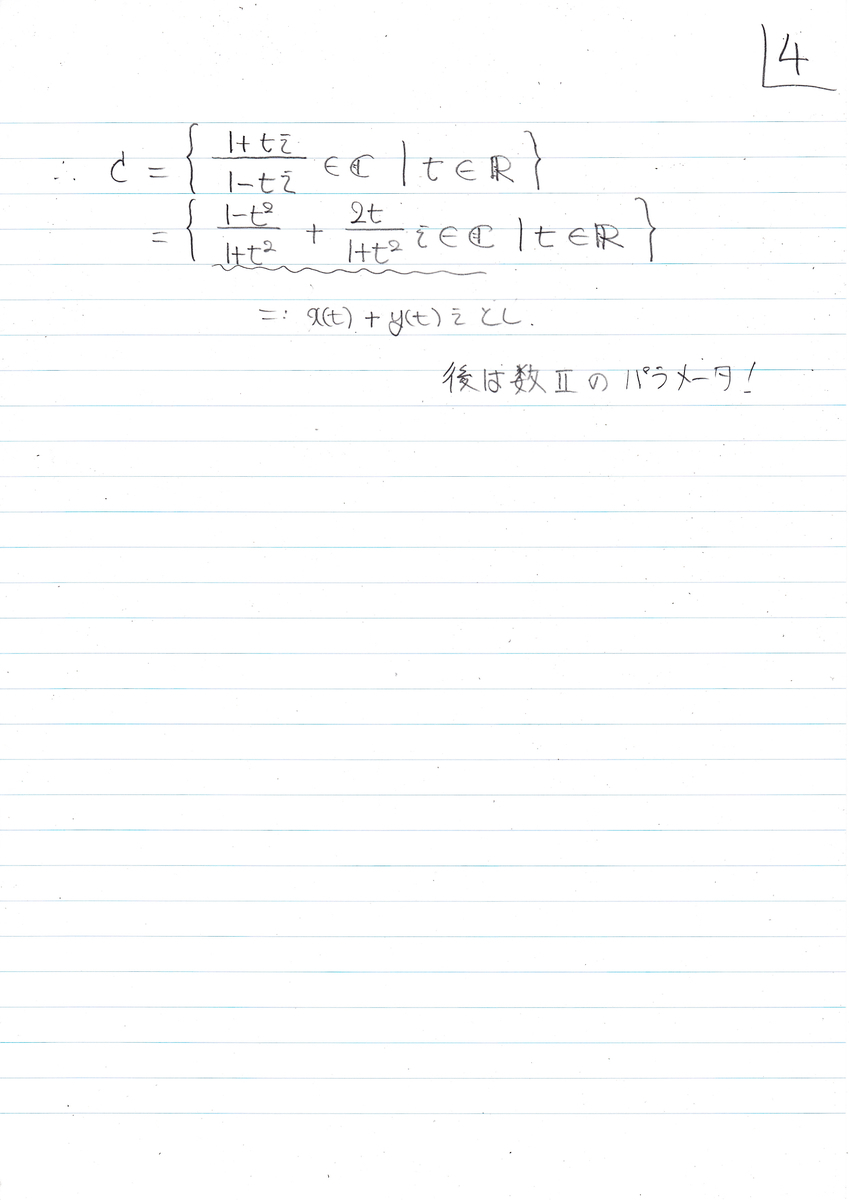 4
∴ C = { (1+ti)/(1-ti) ∈ ℂ | t ∈ ℝ }
= { (1-t²)/(1+t²) + (2t)/(1+t²) i ∈ ℂ | t ∈ ℝ }
=: x(t) + y(t) i とし.
後は数Ⅱのパラメータ!